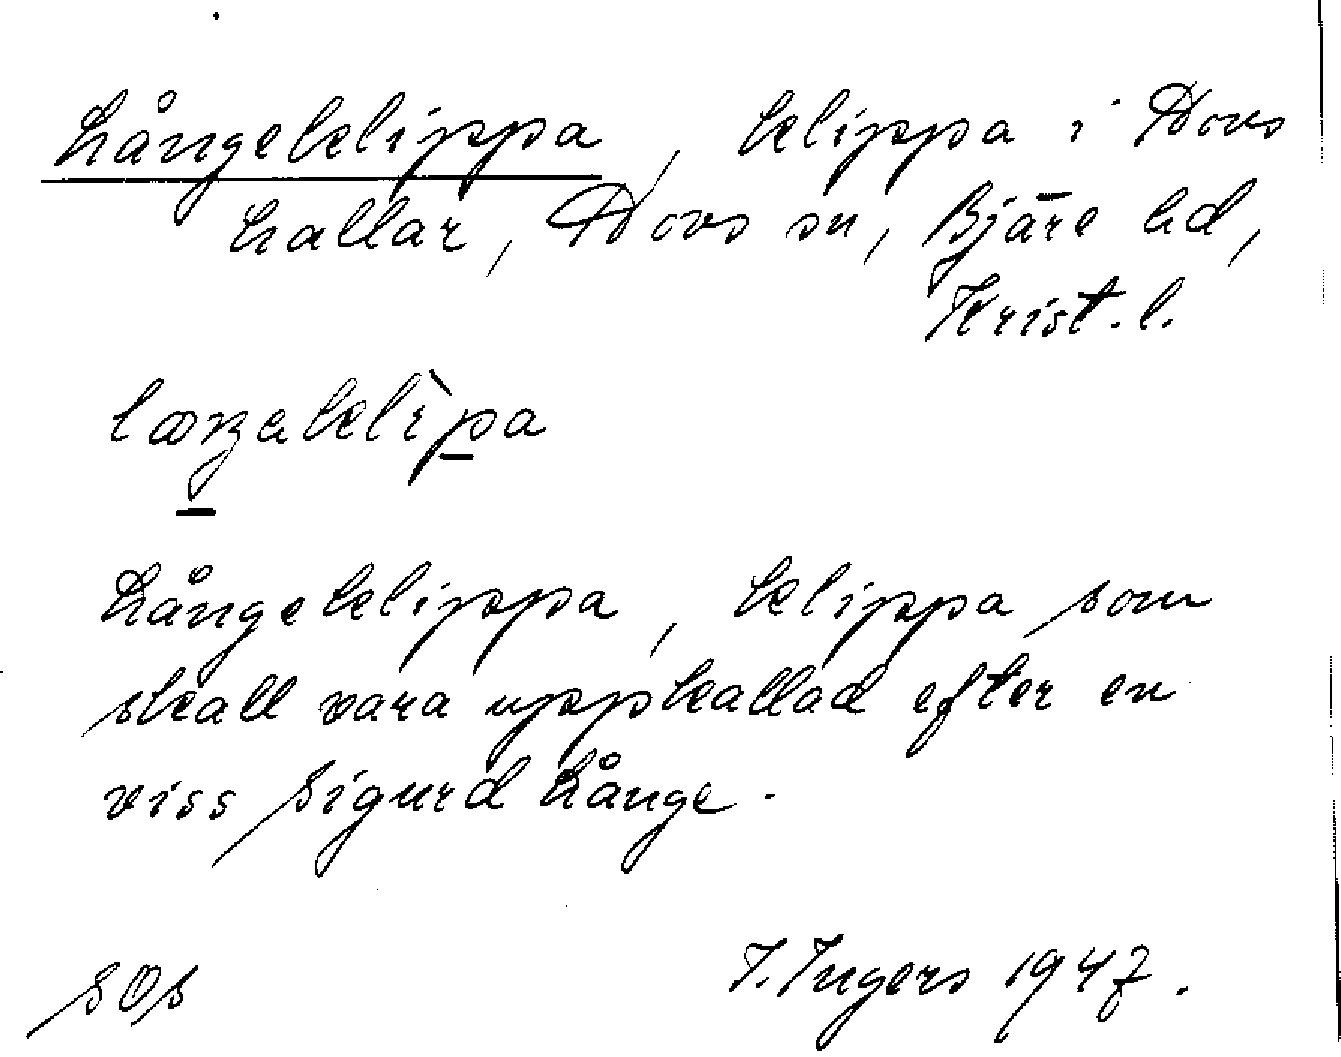 Långeklippa, klippa i Hovs
hallar, Hovs sn, Bjäre hd,
Krist.l.
Långeklippa, klippa som
skall vara uppkallad efter en
viss Sigurd Långe.
SOS I. Ingers 1947.